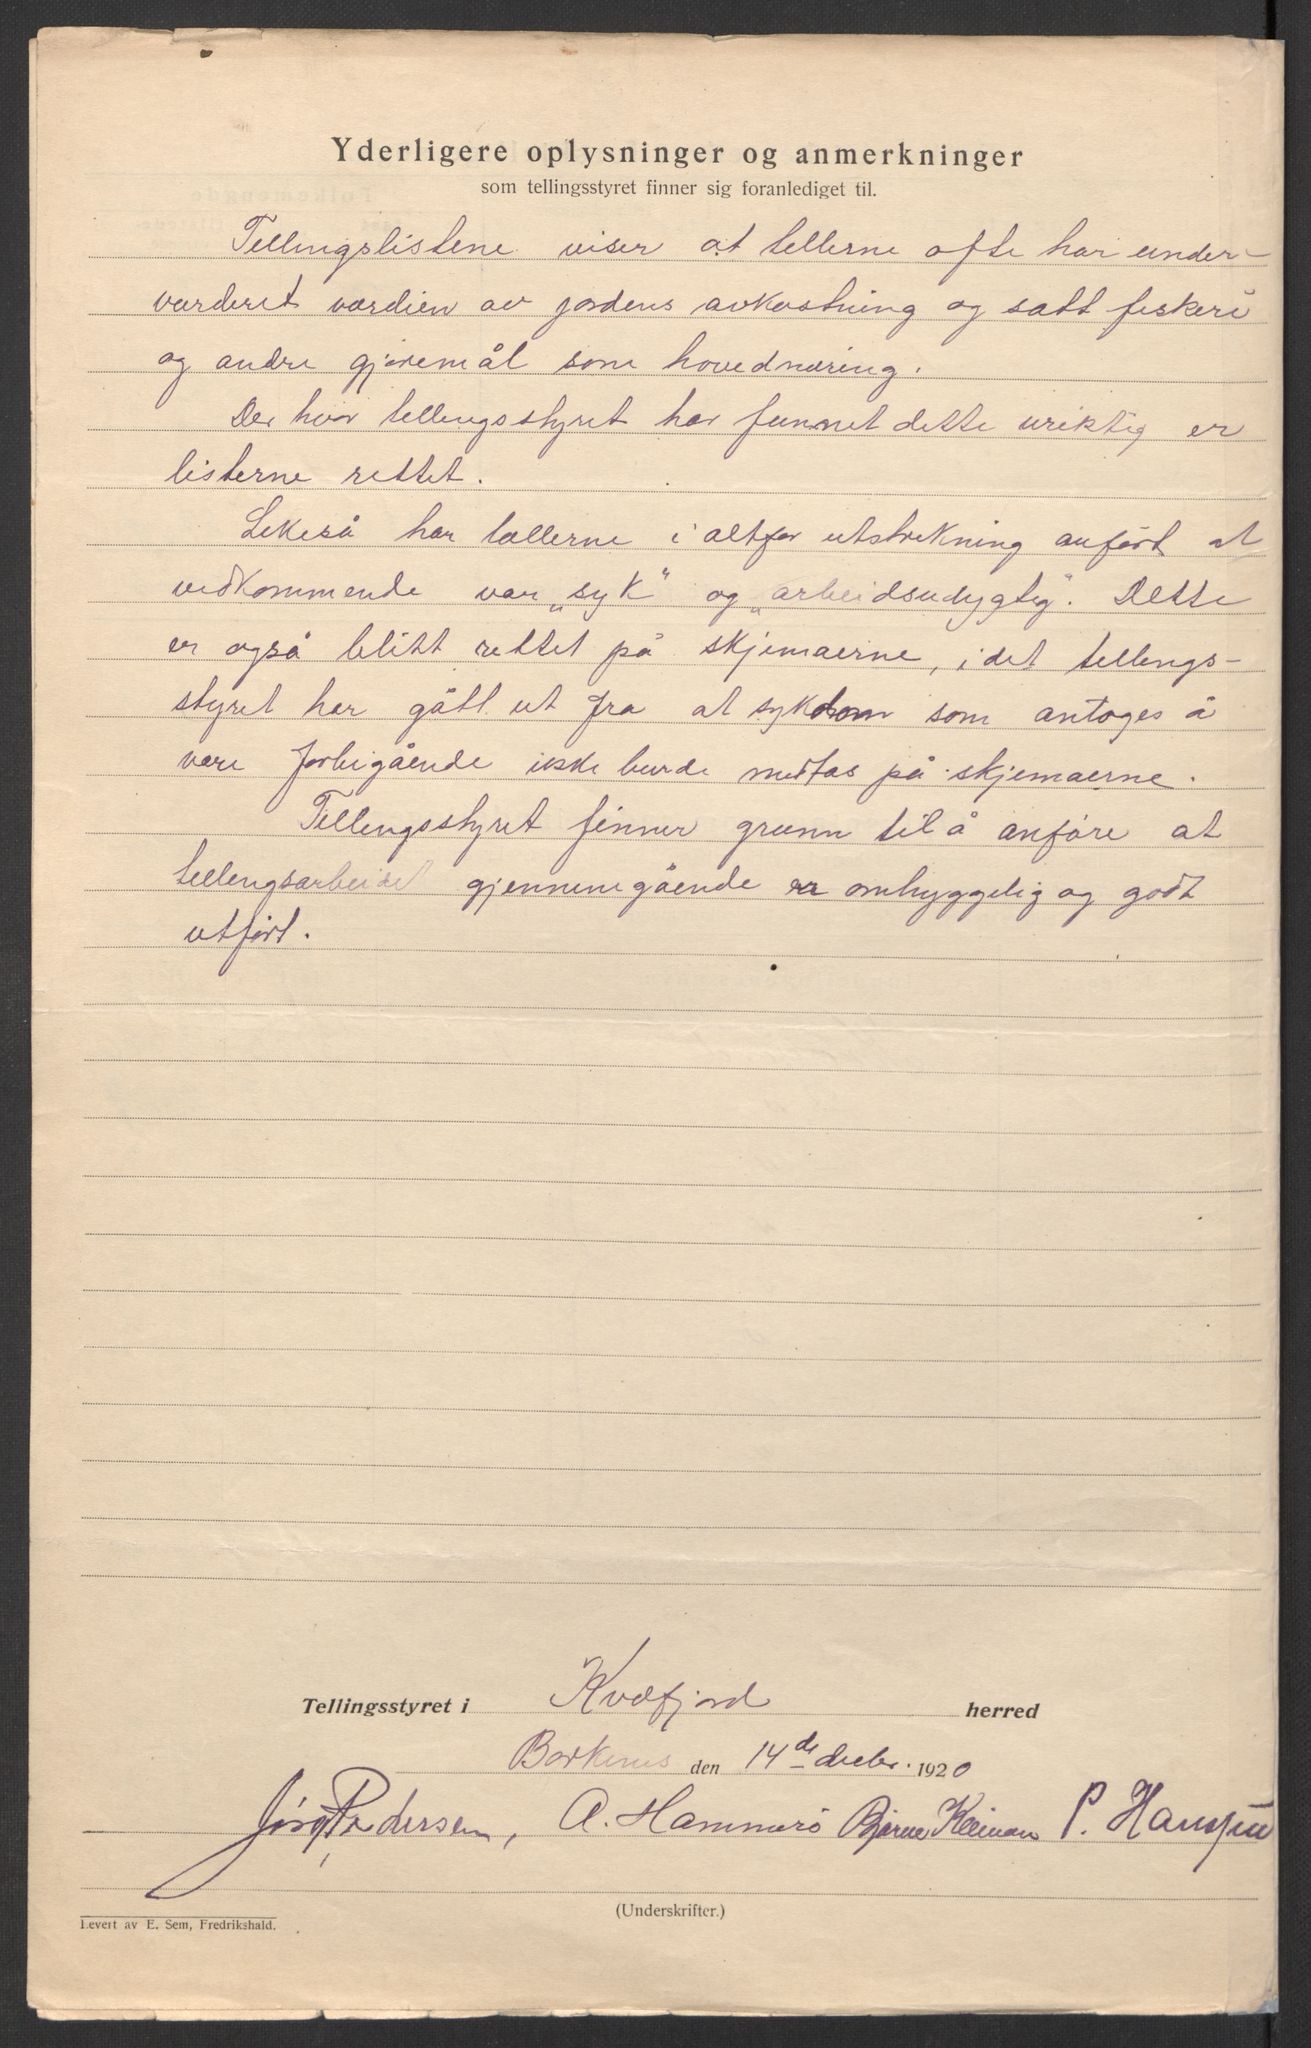 Yderligere oplysninger og anmerkninger
som tellingsstyret finner sig foranlediget til.
Tellingslistene viser at tellerne ofte har under-
vurderet værdien av jordens avkastning og satt fiskeri
og andre gjøremål som hovednæring.
Der hvor tellingsstyret har funnet dette uriktig er
listerne rettet.
Likeså har tællerne i altfor utstrekning anført at
vedkommende var „syk" og „arbeidsudygtig". Dette
er også blitt rettet på skjemaerne, idet tellings-
styret har gått ut fra at sykdom som antoges å
være forbigående ikke burde medtas på skjemaerne.
Tellingsstyret finner grunn til å anføre at
tellingsarbeidet gjennemgående er omhyggelig og godt
utført.
Tellingsstyret i Kvæfjord herred
Borkenes den 14de decbr. 1920
Jørg Pedersen, A. Hammerö Bjarne Kleiman P. Hanssen
(Underskrifter.)
Levert av E. Sem, Fredrikshald.